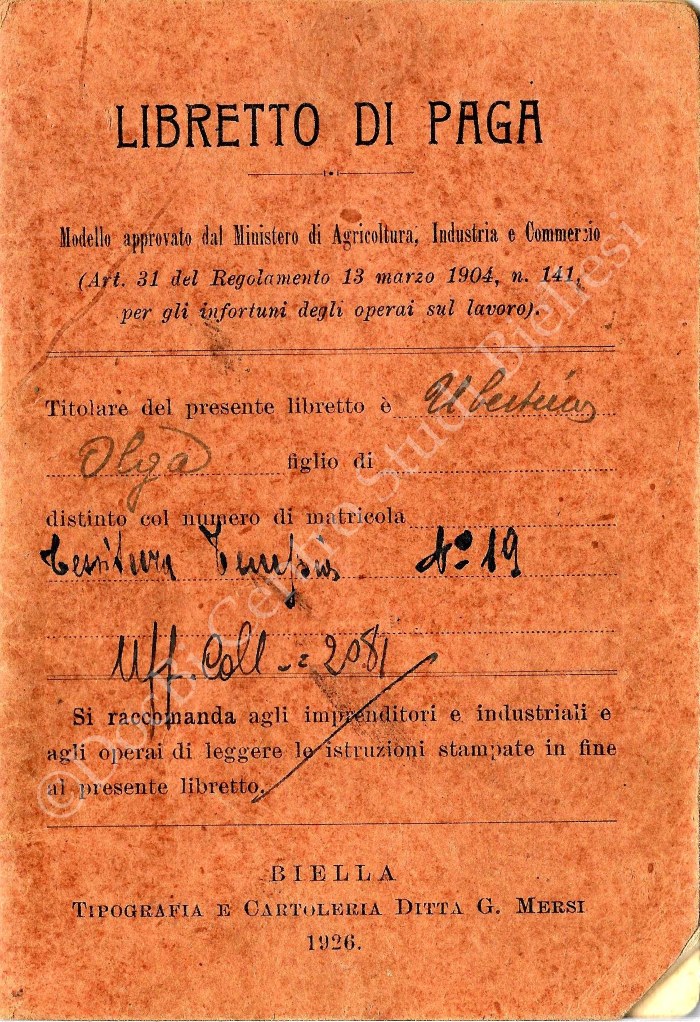 LIBRETTO DI PAGA
Modello approvato dal Ministero di Agricoltura, Industria e Commercio
(Art. 31 del Regolamento 13 marzo 1904, n. 141,
per gli infortuni degli operai sul lavoro).
Titolare del presente libretto è
Olga figlio di
distinto col numero di matricola
Tessitura No 19
Uff. Coll -= 2081
Si raccomanda agli imprenditori e industriali e
agli operai di leggere le istruzioni stampate in fine
al presente libretto.
BIELLA
TIPOGRAFIA E CARTOLERIA DITTA G. MERSI
1926.
©DocBi Centro Studi Biellesi